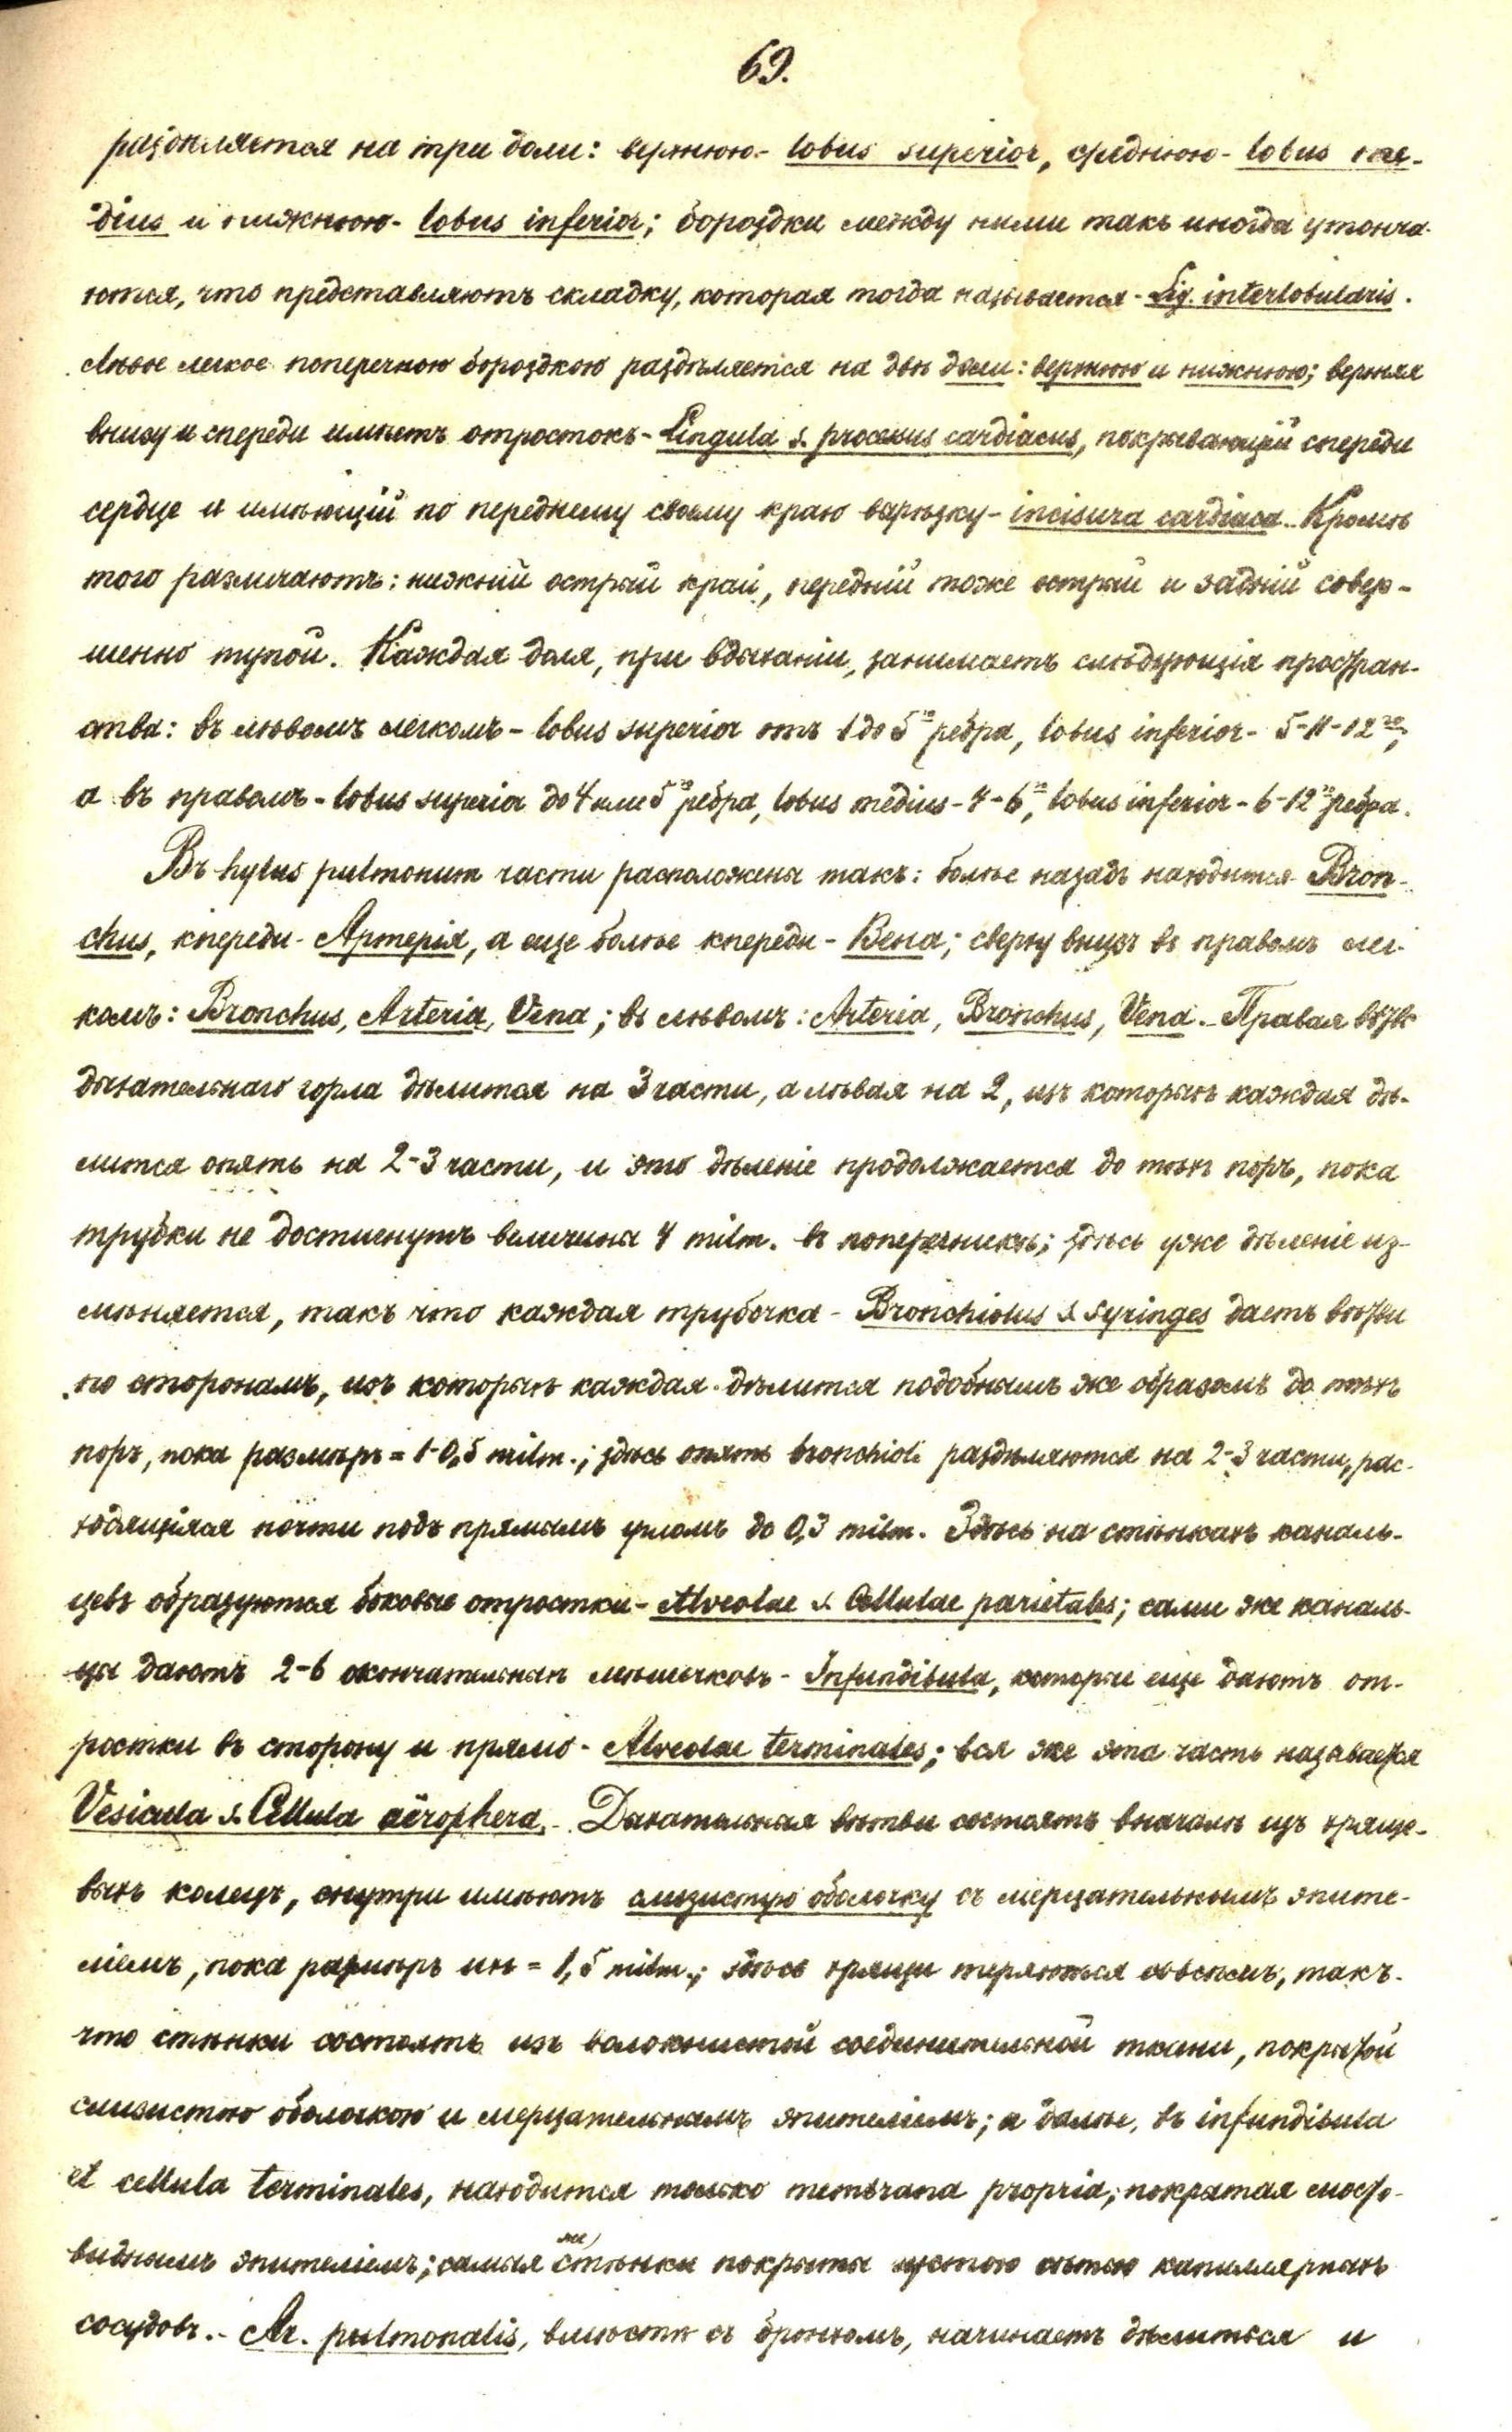 69.
раздѣляется на три доли: верхнюю- lobus superior, среднюю- lobus me-
dius и нижнюю- lobus inferior; бороздки между ними такъ иногда утонча-
ются, что представляютъ складку, которая тогда называется- Lig. interlobularis.
Лѣвое легкое поперечною бороздкою раздѣляется на двѣ доли: верхнюю и нижнюю; верхняя
внизу и спереди имѣетъ отростокъ- Lingula s. processus cardiacus, покрывающій спереди
сердце и имѣющій по переднему своему краю варѣзку- incisura cardiaca.- Кромѣ
того различаютъ: нижній острый край, передній тоже острый и задній совер-
шенно тупой. Каждая доля, при вдыханіи, занимаетъ слѣдующія простран-
ства: въ лѣвомъ легкомъ- lobus superior отъ 1 до 5го ребра, lobus inferior- 5-11-12го,
а въ правомъ- lobus superior до 4 или 5го ребра, lobus medius- 4-6го, lobus inferior- 6-12го ребра.
Въ hylus pulmonum части расположены такъ: болѣе назадъ находится Bron-
chus, кпереди- Артерія, а еще болѣе кпереди- Вена; сверху внизъ въ правомъ лег-
комъ: Bronchus, Arteria, Vena; въ лѣвомъ: Arteria, Bronchus, Vena.- Правая вѣтвь
дыхательнаго горла дѣлится на 3 части, а лѣвая на 2, изъ которыхъ каждая дѣ-
лится опять на 2-3 части, и это дѣленіе продолжается до тѣхъ поръ, пока
трубки не достигнутъ величины 4 milm. въ поперечникѣ; здѣсь уже дѣленіе из-
мѣняется, такъ что каждая трубочка- Bronchiolus s. syringes даетъ вѣтви
по сторонамъ, изъ которыхъ каждая дѣлится подобнымъ же образомъ до тѣхъ
поръ, пока размѣръ = 1-0,5 milm.; здѣсь опять bronchioli раздѣляются на 2-3 части, рас-
ходящіяся почти подъ прямымъ угломъ до 0,3 milm. Здѣсь на стѣнкахъ каналь-
цевъ образуются боковые отростки- Alveolae s. Cellulae parietales; сами же каналь-
цы даютъ 2-6 окончательныхъ мѣшечковъ- Infundibula, которые еще даютъ от-
ростки въ сторону и прямо- Alveolae terminales; вся же эта часть называется
Vesicula s. Cellula aërophera.- Дыхательныя вѣтви состоятъ вначалѣ изъ хряще-
выхъ колецъ, снутри имѣютъ слизистую оболочку съ мерцательнымъ эпите-
ліемъ, пока размѣръ ихъ = 1,5 milm.; здѣсь хрящи теряются совсѣмъ, такъ-
что стѣнки состоятъ изъ волокнистой соединительной ткани, покрытой
слизистою оболочкою и мерцательнымъ эпителіемъ; а далѣе, въ infundibula
et cellula terminales, находится только membrana propria, покрытая мосто-
виднымъ эпителіемъ; самыя же стѣнки покрыты густою сѣтью капиллярныхъ
сосудовъ.- Ar. pulmonalis, вмѣстѣ съ бронхомъ, начинаетъ дѣлиться и